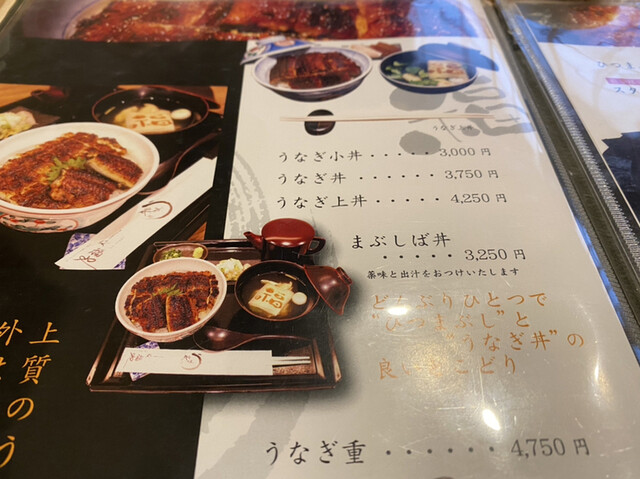 うなぎ小丼・・・・・3,000円
うなぎ丼・・・・・3,750円
うなぎ上丼・・・・・4,250円
まぶしば丼
・・・・・3,250円
薬味と出汁をおつけいたします
どんぶりひとつで
"ひつまぶし"と
"うなぎ丼"の
良いとこどり
うなぎ重・・・・・・4,750円
上質の
福
ひつま